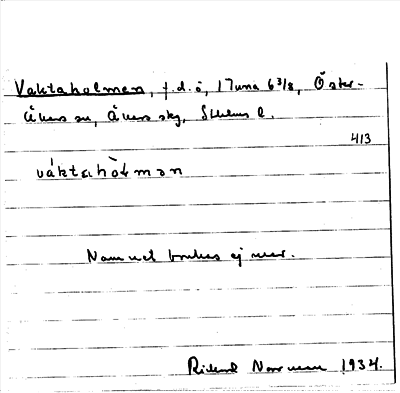 Vaktaholmen, f.d. ö, i Tuna 6 3/8, Öster-
åkers sn, Åkers skg, Sthlms l.
413
váktahòlmən
Namnet brukas ej mer.
Rikard Norrman 1934.